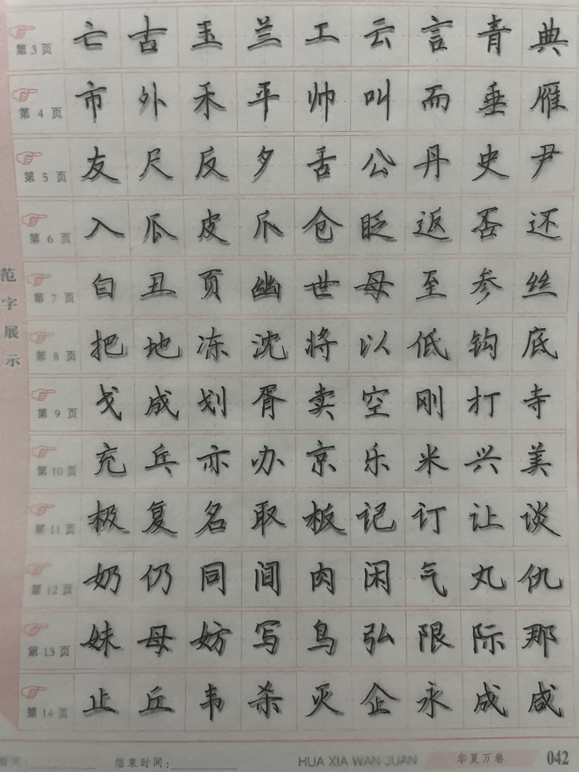 第3页 亡 古 玉 兰 工 云 言 青 典
第4页 市 外 禾 平 帅 叫 而 垂 雁
第5页 友 尺 反 夕 舌 公 丹 史 尹
第6页 入 瓜 皮 爪 仓 眨 返 否 还
第7页 自 丑 页 幽 世 母 至 参 丝
第8页 把 地 冻 沈 将 以 低 钩 底
第9页 戈 成 划 胥 卖 空 刚 打 寺
第10页 充 兵 亦 办 京 乐 米 兴 美
第11页 极 复 名 取 板 记 订 让 谈
第12页 奶 仍 同 间 肉 闲 气 丸 仇
第13页 妹 母 妨 写 鸟 弘 限 际 那
第14页 止 丘 韦 杀 灭 企 永 成 咸
范字展示
结束时间:
HUA XIA WAN JUAN 华夏万卷 042